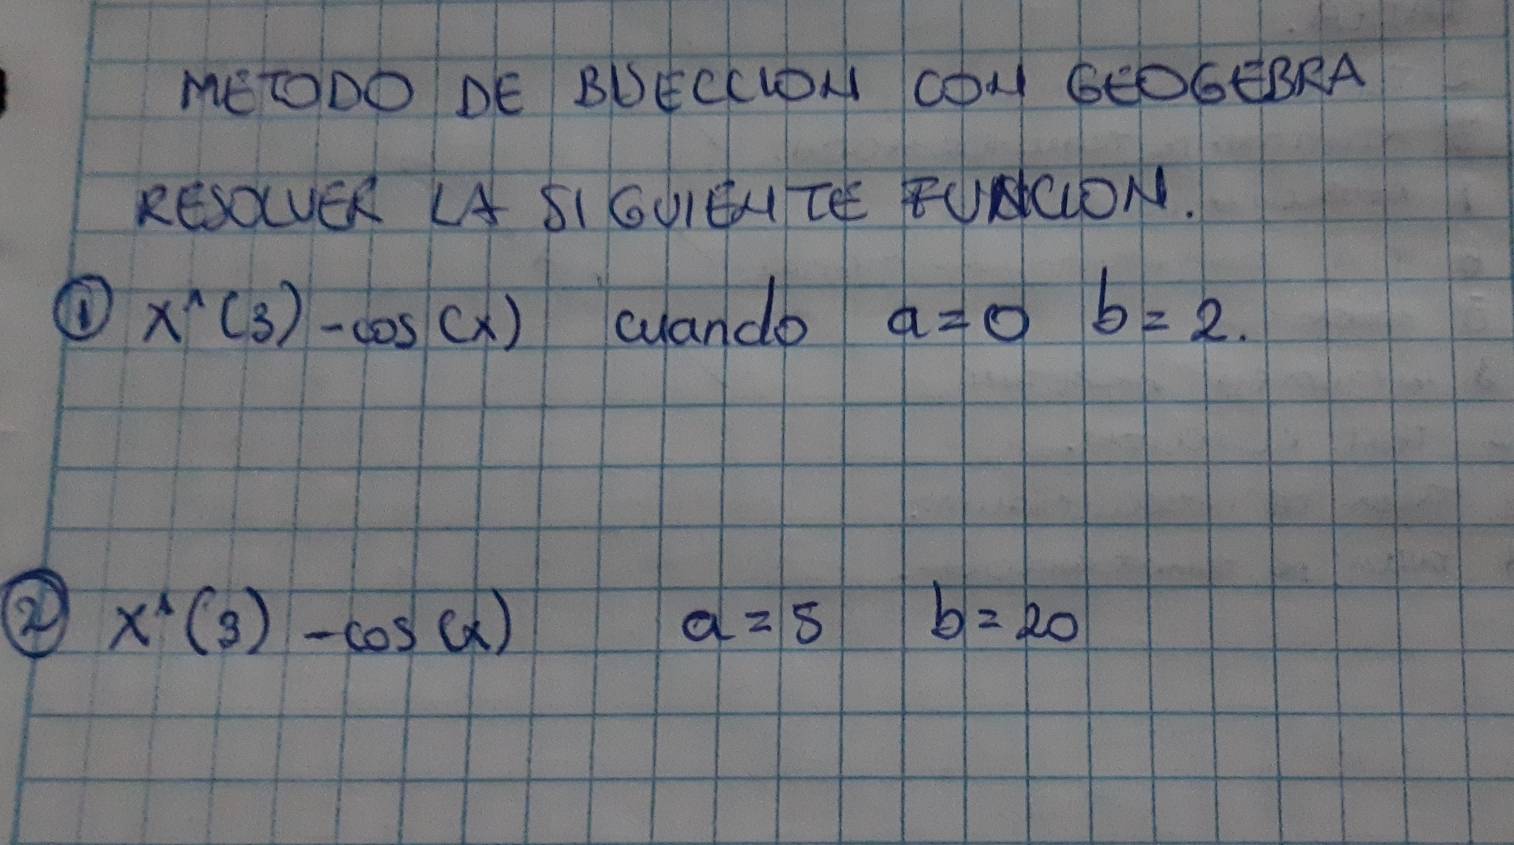 METODO DE BISECCION CON GEOGEBRA
RESOLVER LA SIGUIENTE FUNCION.
① x^(3) - cos(x) cuando a = 0 b = 2.
② x^(3) - cos(x) a = 5 b = 20